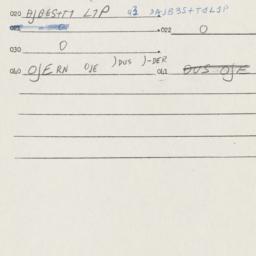 020 AJBES+T1 L1P 03 DAJB3S+T1L1P
021 0 022 0
030 0
040 OJERN OJE )DUS )-DER 041 DUS OJE